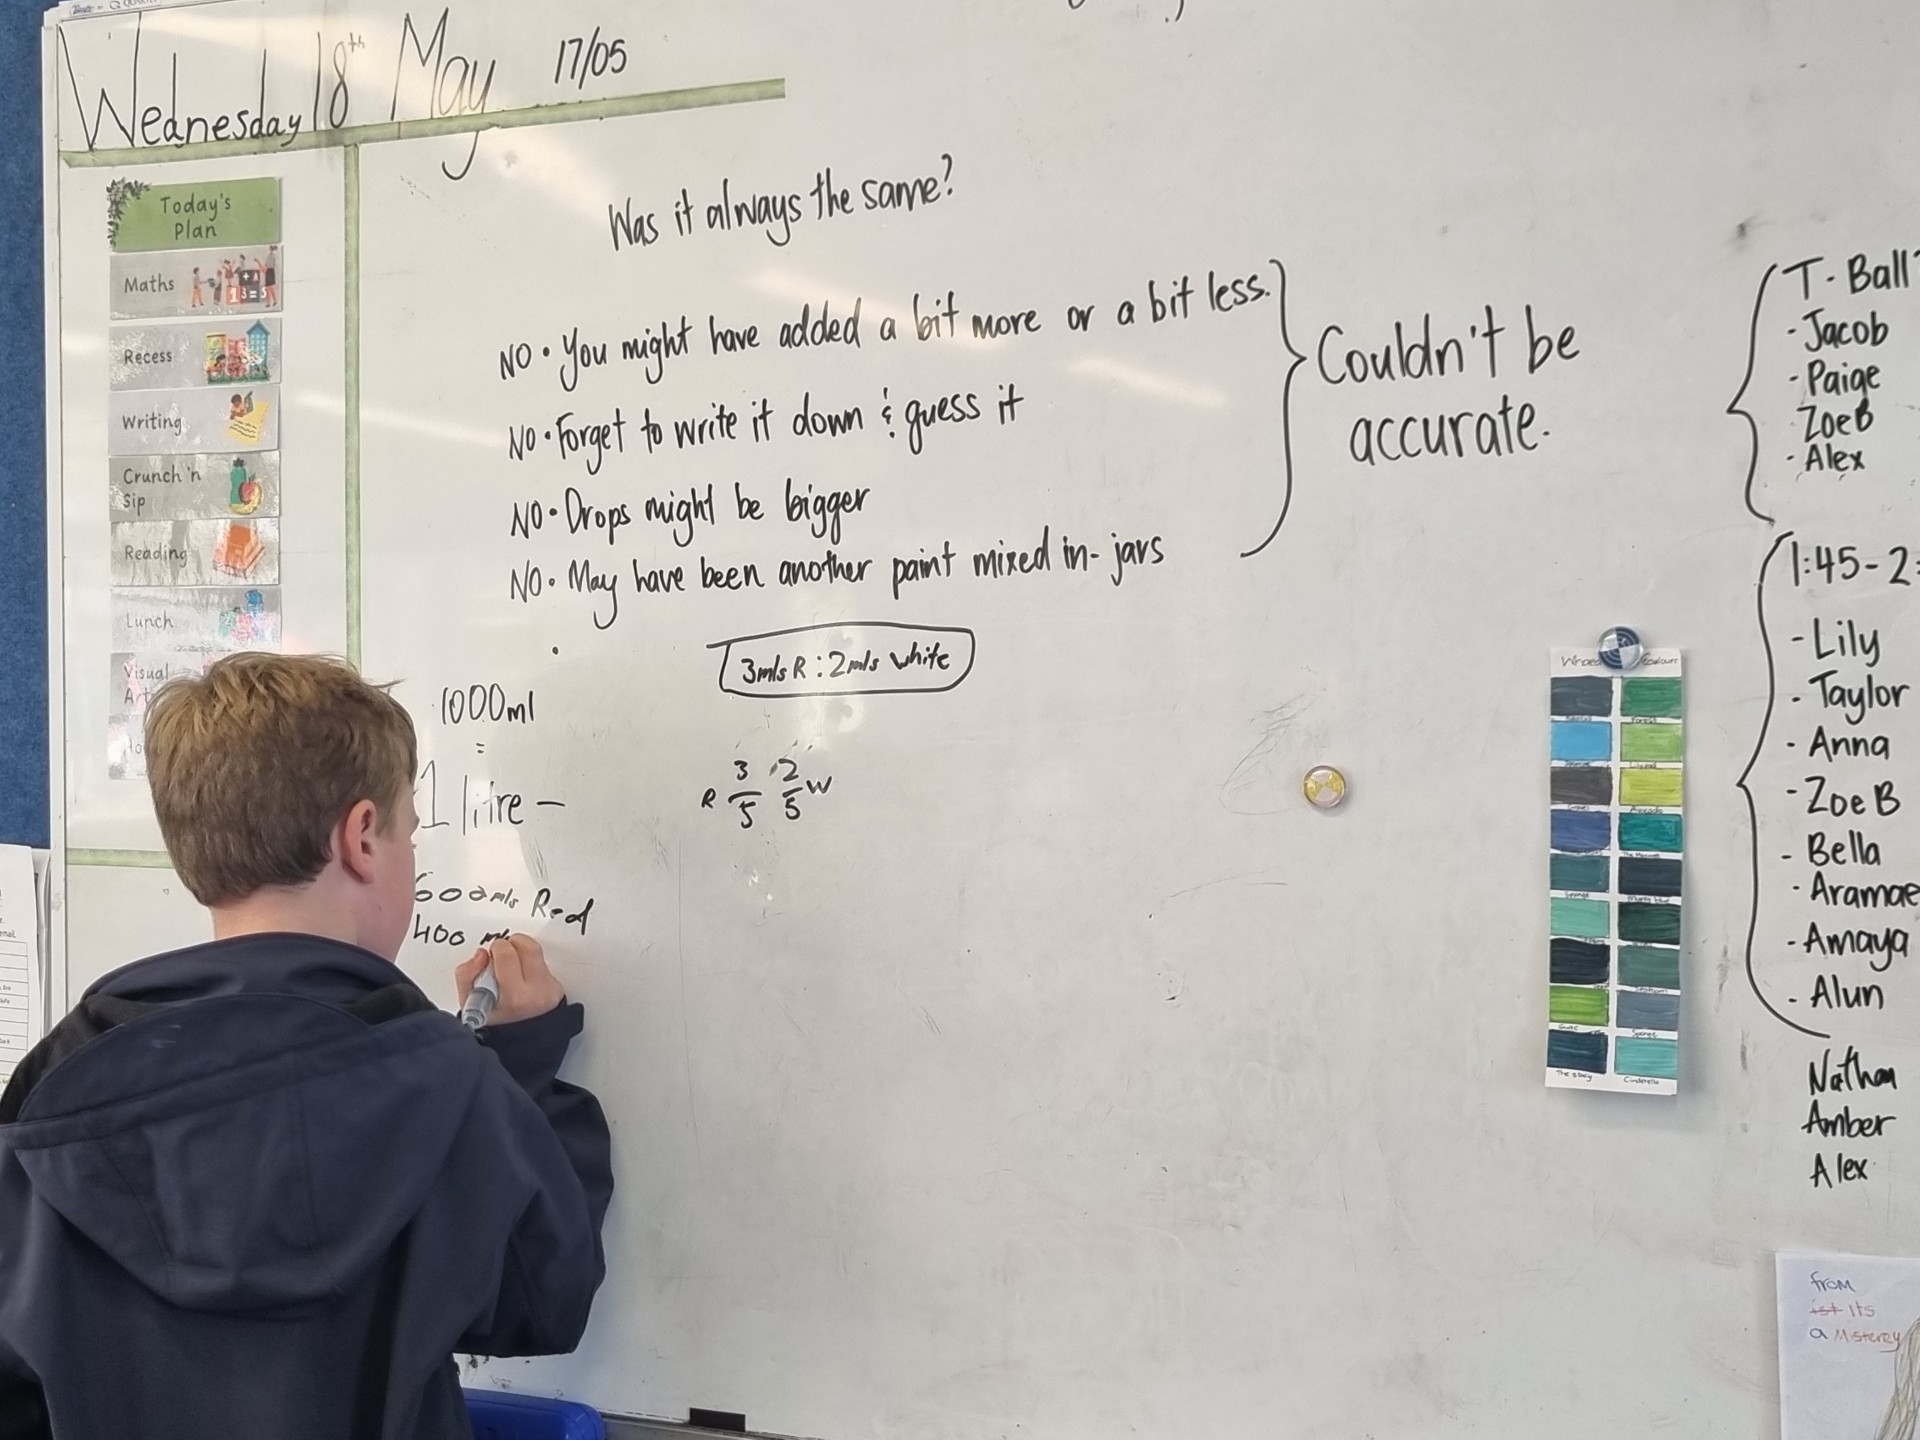 Wednesday 18th May 17/05
Today's
Plan
Maths
Recess
Writing
Crunch 'n
Sip
Reading
Lunch
Visual
Was it always the same?
NO • You might have added a bit more or a bit less.
NO • Forget to write it down & guess it
NO • Drops might be bigger
NO • May have been another paint mixed in - jars
Couldn't be
accurate.
3mls R : 2mls white
1000ml
=
1 litre -
R 3/5 2/5 W
600mls Red
400 mls
T-Ball
- Jacob
- Paige
ZoeB
- Alex
1:45 - 2:
- Lily
- Taylor
- Anna
- Zoe B
- Bella
- Aramae
- Amaya
- Alun
Nathan
Amber
Alex
Forest
The story
Cinderella
from
ist its
a Misterey